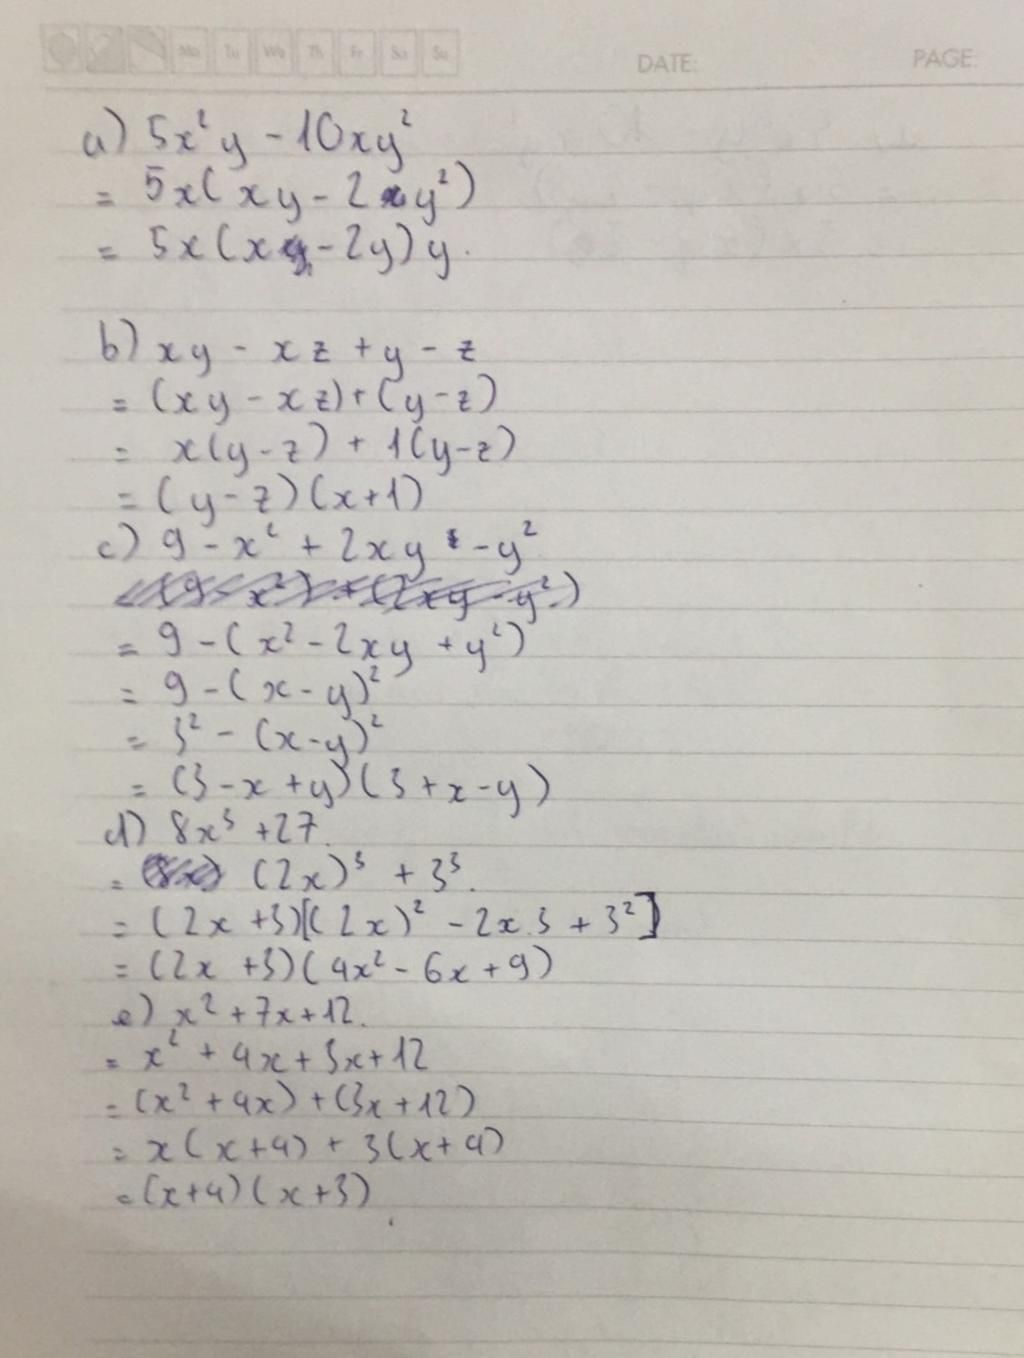 Mo Tu We Th Fr Sa Su DATE: PAGE:
a) 5x²y - 10xy²
= 5x(xy - 2y²)
= 5x(x - 2y)y.
b) xy - xz + y - z
= (xy - xz) + (y - z)
= x(y - z) + 1(y - z)
= (y - z)(x + 1)
c) 9 - x² + 2xy - y²
= 9 - (x² - 2xy + y²)
= 9 - (x - y)²
= 3² - (x - y)²
= (3 - x + y)(3 + x - y)
d) 8x³ + 27.
= (2x)³ + 3³.
= (2x + 3)[(2x)² - 2x.3 + 3²]
= (2x + 3)(4x² - 6x + 9)
e) x² + 7x + 12.
= x² + 4x + 3x + 12
= (x² + 4x) + (3x + 12)
= x(x + 4) + 3(x + 4)
= (x + 4)(x + 3)